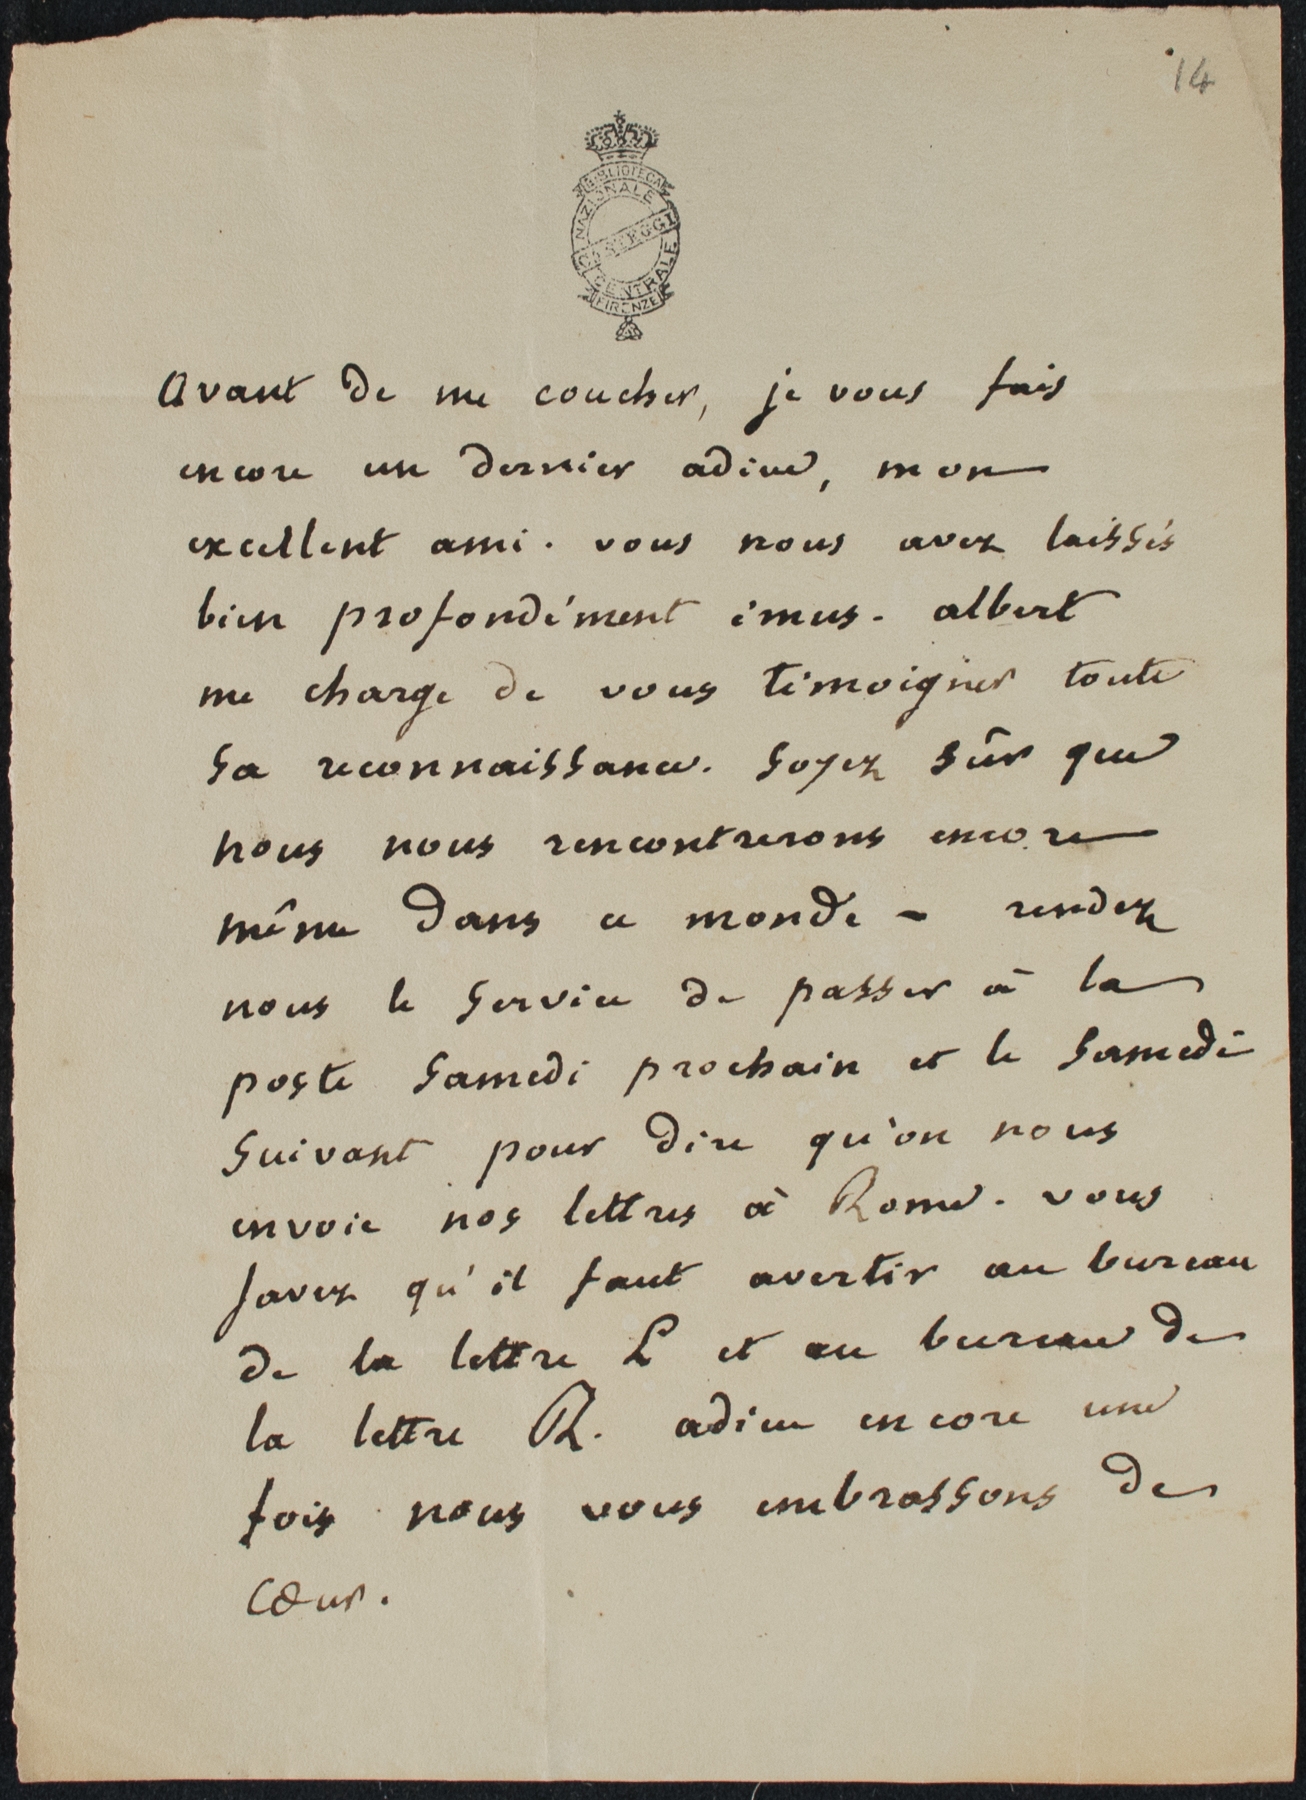 14
BIBLIOTECA
NAZIONALE
CARTEGGI
CENTRALE
FIRENZE
Avant de me coucher, je vous fais
encore un dernier adieu, mon
excellent ami. vous nous avez laissés
bien profondément émus. albert
me charge de vous témoigner toute
sa reconnaissance. soyez sûr que
nous nous rencontrerons encore
même dans ce monde - rendez
nous le service de passer à la
poste samedi prochain et le samedi
suivant pour dire qu'on nous
envoie nos lettres à Rome. vous
savez qu'il faut avertir au bureau
de la lettre L et au bureau de
la lettre R. adieu encore une
fois nous vous embrassons de
cœur.